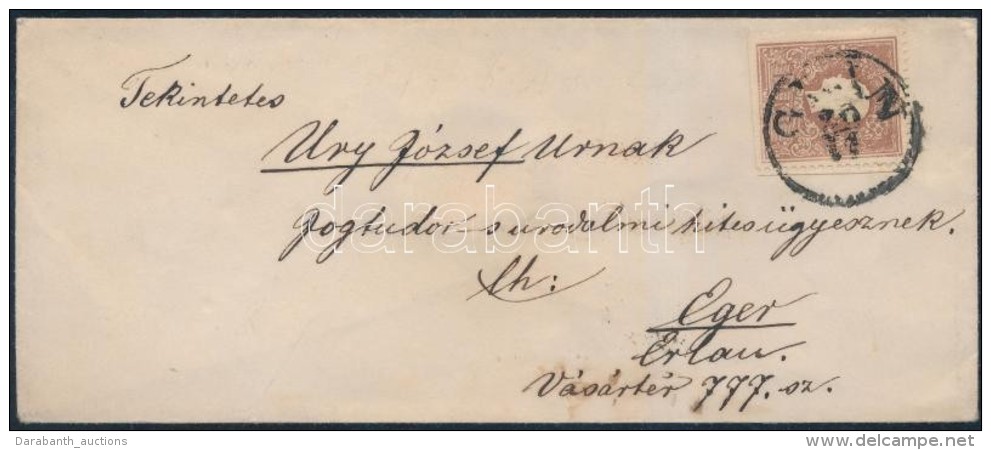 Tekintetes
Ury József Urnak
Jogtudor s urodalmi hitesügyésznek.
Eger
Erlau.
Vásártér 777. sz.
darabanth
Darabanth_auctions
www.delcampe.net